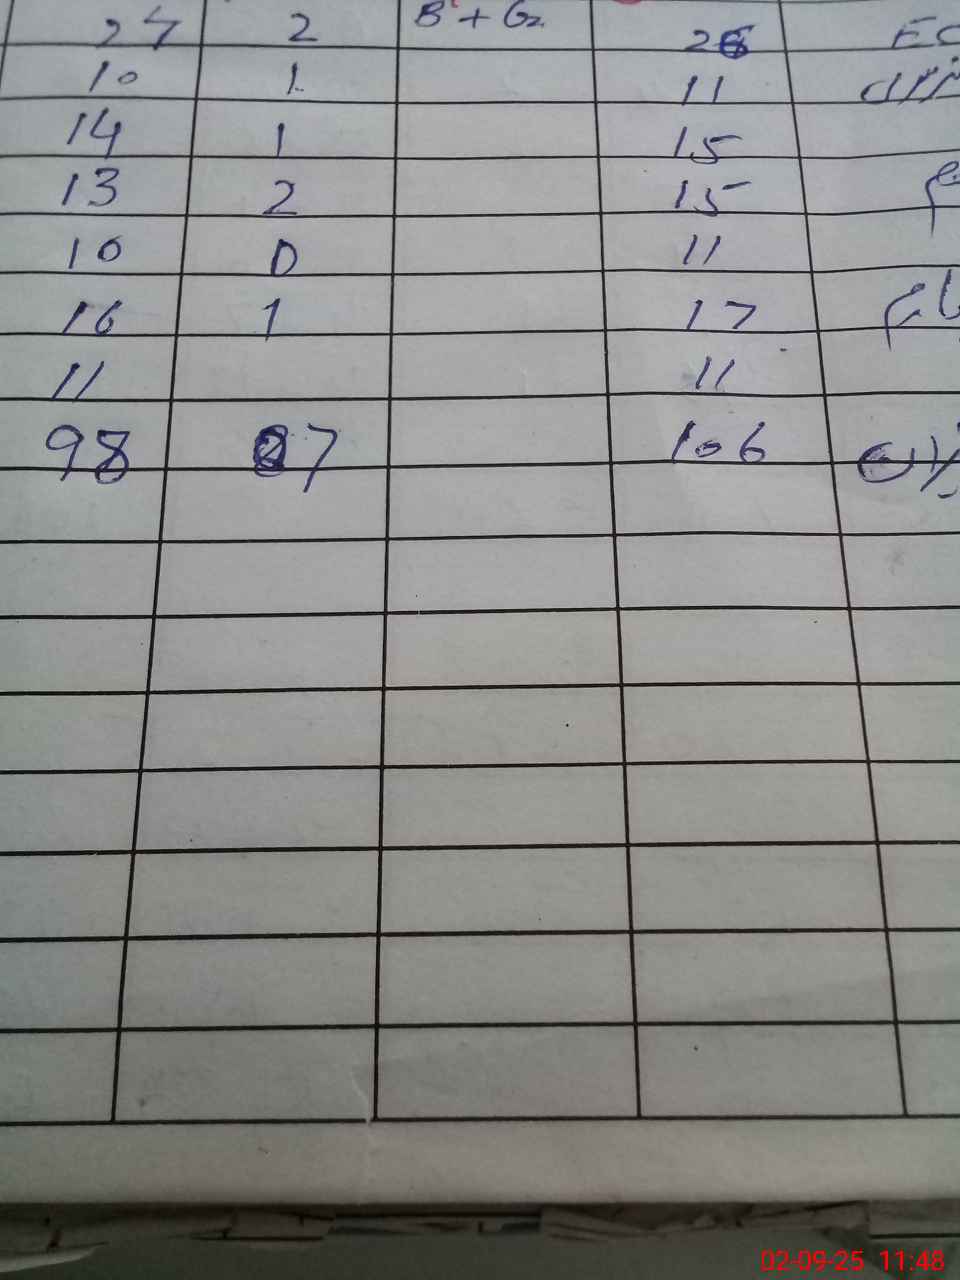 24 2 B + G2 26 EC
10 1 11
14 1 15
13 2 15
10 0 11
16 1 17
11 11
98 7 106
02-09-25 11:48